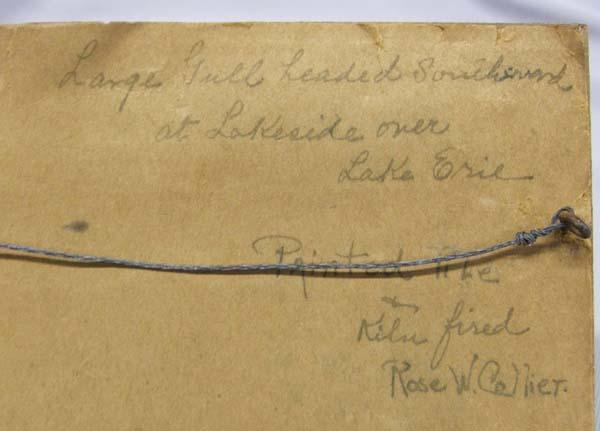 Large Gull headed Southward
at Lakeside over
Lake Erie
Painted Tile
&
Kiln fired
Rose W. Collier.